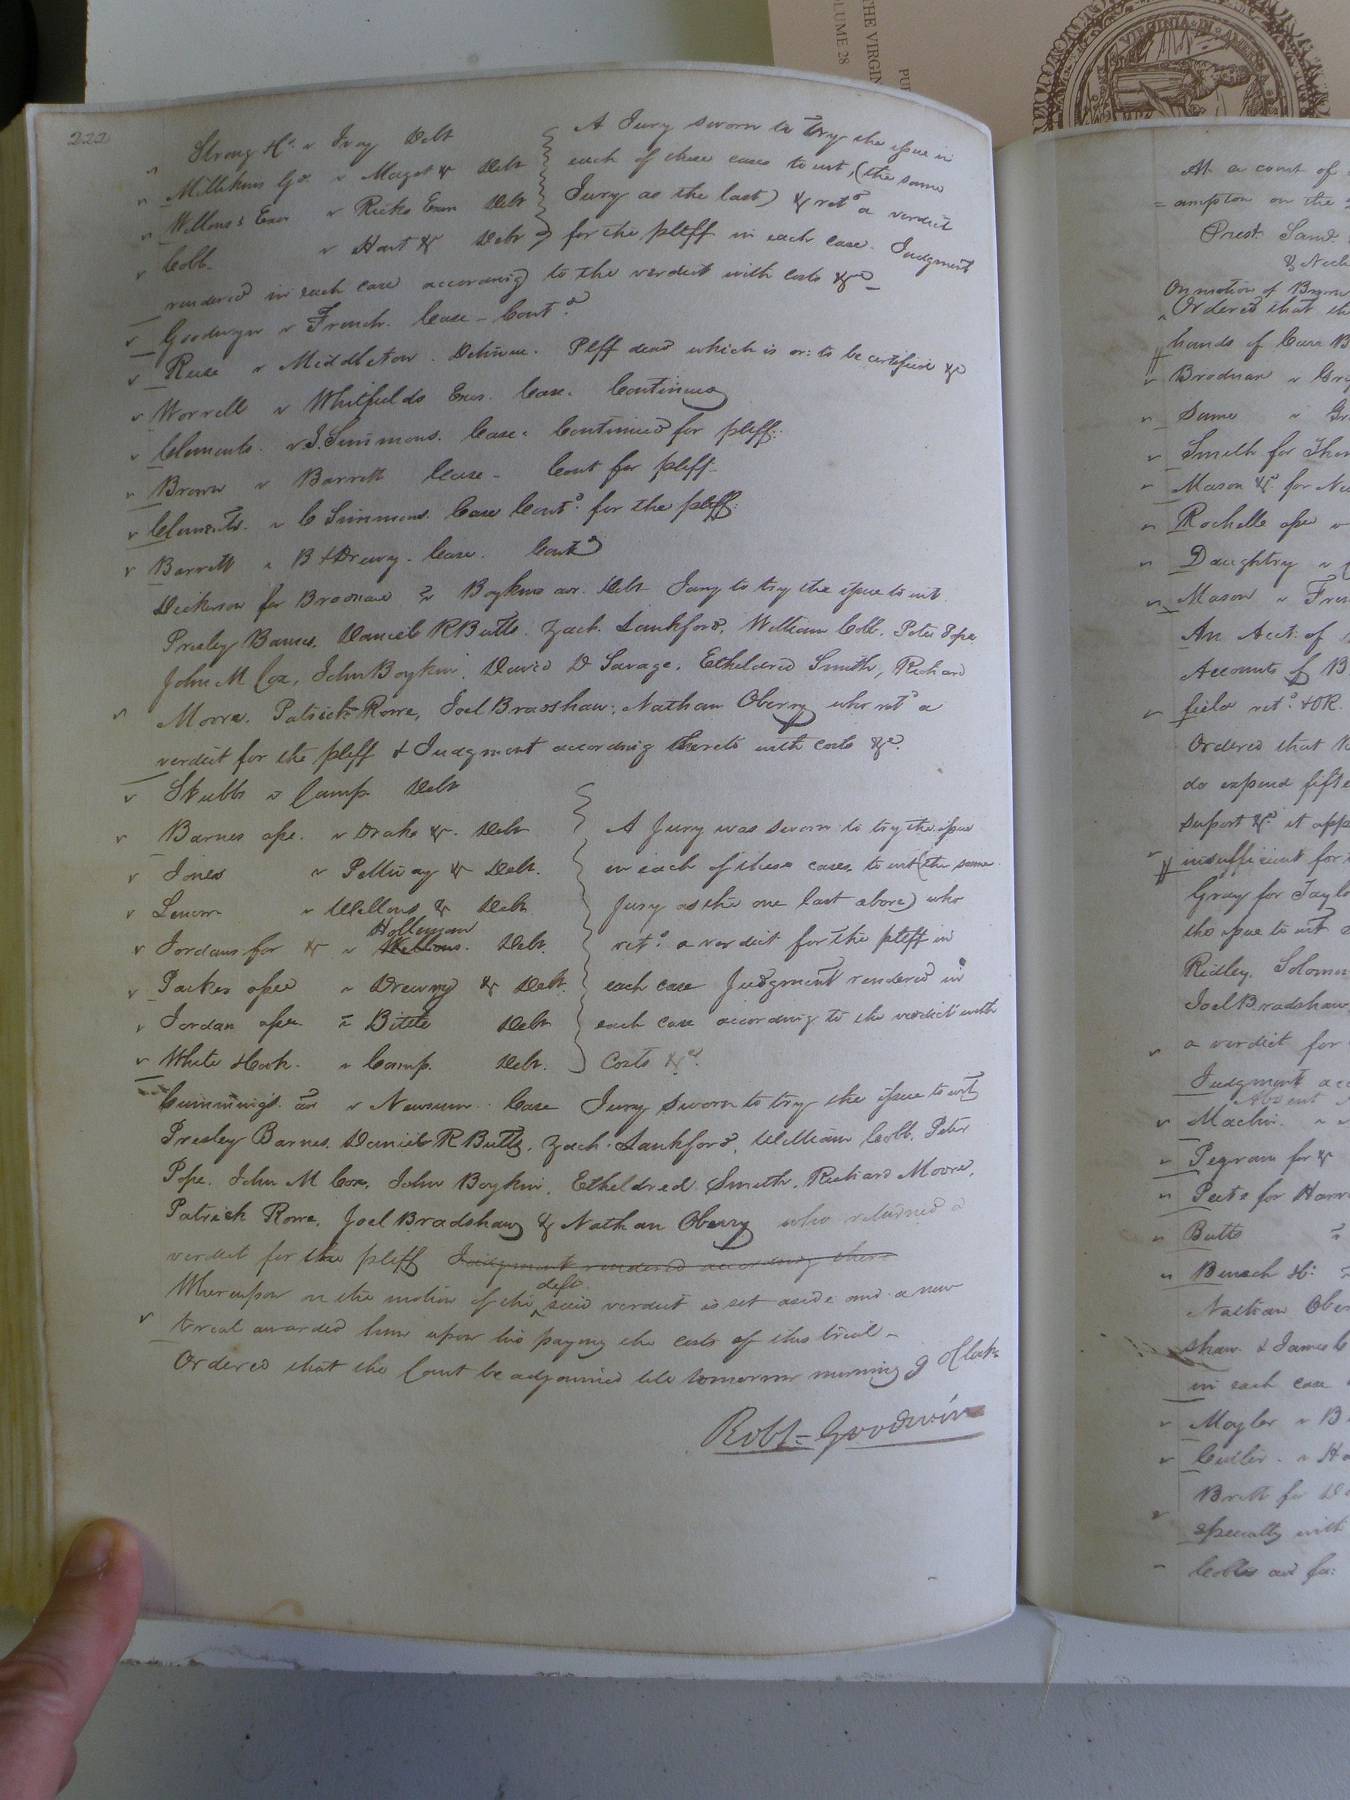 222
Strong Hr. v Ivay Debt
Millikins Go. v Maget & Debt
Wellons's Exor v Ricks Exon Debt
Cobb. v Hart & Debt
A Jury sworn to try the issue in
each of these cases to wit, (the same
Jury as the last) & retd a verdict
for the pleff in each case. Judgment
rendered in each case according to the verdict with costs &c
Goodwyn v French. Case - Contd
Reese v Middleton. Detinue. Pleff dead which is or: to be certified &c
Worrell v Whitfields Exos. Case. Continued
Clements. v J. Simmons. Case. Continued for pleff.
Brown v Barrett Case - Cont for pleff.
Clements. v C Simmons. Case Contd. for the pleff.
Barrett v B & Drewry. Case. Contd
Dickinson for Brodnax v Boykins Debt Jury to try the issue to wit
Presley Barnes, Daniel R Butts. Zach. Lankford, William Cobb, Peter Pope,
John M Cox, John Boykin, David D Savage, Etheldred Smith, Richard
Moore, Patrick Rowe, Joel Bradshaw, Nathan Oberry who retd a
verdict for the pleff & Judgment according thereto with costs &c.
Stubbs v Camp Debt
Barnes assee. v Drake &. Debt
Jones v Pettway & Debt.
Lenow v Wellons & Debt
Holleman
Jordans for & v Wellons. Debt.
Parker assee v Drewry & Debt.
Jordan assee v Bittle Debt
White v Camp. Debt.
A Jury was sworn to try the issue
in each of these cases, to wit (the same
Jury as the one last above) who
retd. a verdict for the pleff in
each case Judgment rendered in
each case according to the verdict with
Costs &c.
Cummings v Newsum. Case Jury sworn to try the issue to wit
Presley Barnes, Daniel R Butts, Zach. Lankford, William Cobb, Peter
Pope, John M Cox, John Boykin, Etheldred Smith, Richard Moore,
Patrick Rowe, Joel Bradshaw & Nathan Oberry who returned a
verdict for the pleff Judgment rendered according there
deft
Whereupon on the motion of the said verdict is set aside and a new
trial awarded him upon his paying the costs of this trial -
Ordered that the Court be adjourned till tomorrow morning 9 OClock
Robt Goodwin
THE VIRGIN
OLUME 28
PU
VIRGINIA IN AMER
At a court of
ampton on the
Prest. Saml.
On motion of Brown
Ordered that the
hands of Carr B
Brodnax v Gr
Same v Gr
Smith for Thom
Mason & for Ne
Rochelle assee v
Daughtry v
Mason v Fren
An Acct. of
Accounts of B
field retd. & OR.
Ordered that
do expend fifte
suport &c it app
insufficient for
Gray for Taylo
the issue to wit
Ridley, Solomon
Joel Bradshaw
a verdict for
Judgment acc
Absent
Machin. v
Pegram for &
Peets for Harr
Butts v
Beasch Hr.
Nathan Ober
shaw. & James
in each case
Moyler v B
Cutler. v Ha
Brett for D
specialty with
Cobbs